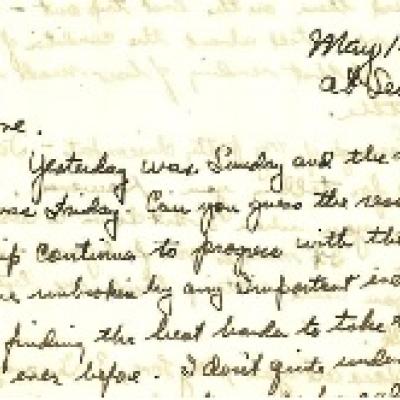 May 1
at Sea
ne.
Yesterday was Sunday and the
was Friday. Can you guess the reas
ip continues to progress with the
re unbroken by any important in
finding the heat harder to take
ever before. I don't quite under